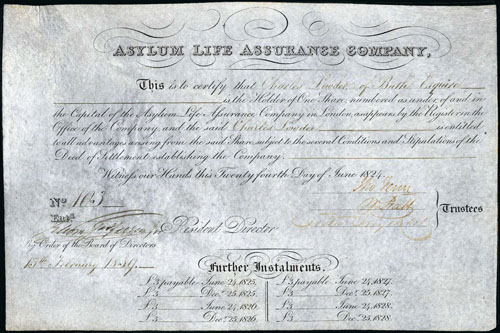 ASYLUM LIFE ASSURANCE COMPANY,
This is to certify that Charles Lowder of Bath Esquire
is the Holder of One Share, numbered as under, of and in
the Capital of the Asylum Life Assurance Company in London, as appears by the Register in the
Office of the Company, and the said Charles Lowder is entitled
to all advantages arising from the said Share, subject to the several Conditions and Stipulations of the
Deed of Settlement establishing the Company.
Witness our Hands this Twenty fourth Day of June 1824
No 1063
Trustees
Entd.
Resident Director
By Order of the Board of Directors
Further Instalments.
£5 payable June 24, 1825. £5 payable June 24, 1827.
£5 Decr. 25, 1825. £5 Decr. 25, 1827.
£5 June 24, 1826. £5 June 24, 1828.
£5 Decr. 25, 1826. £5 Decr. 25, 1828.